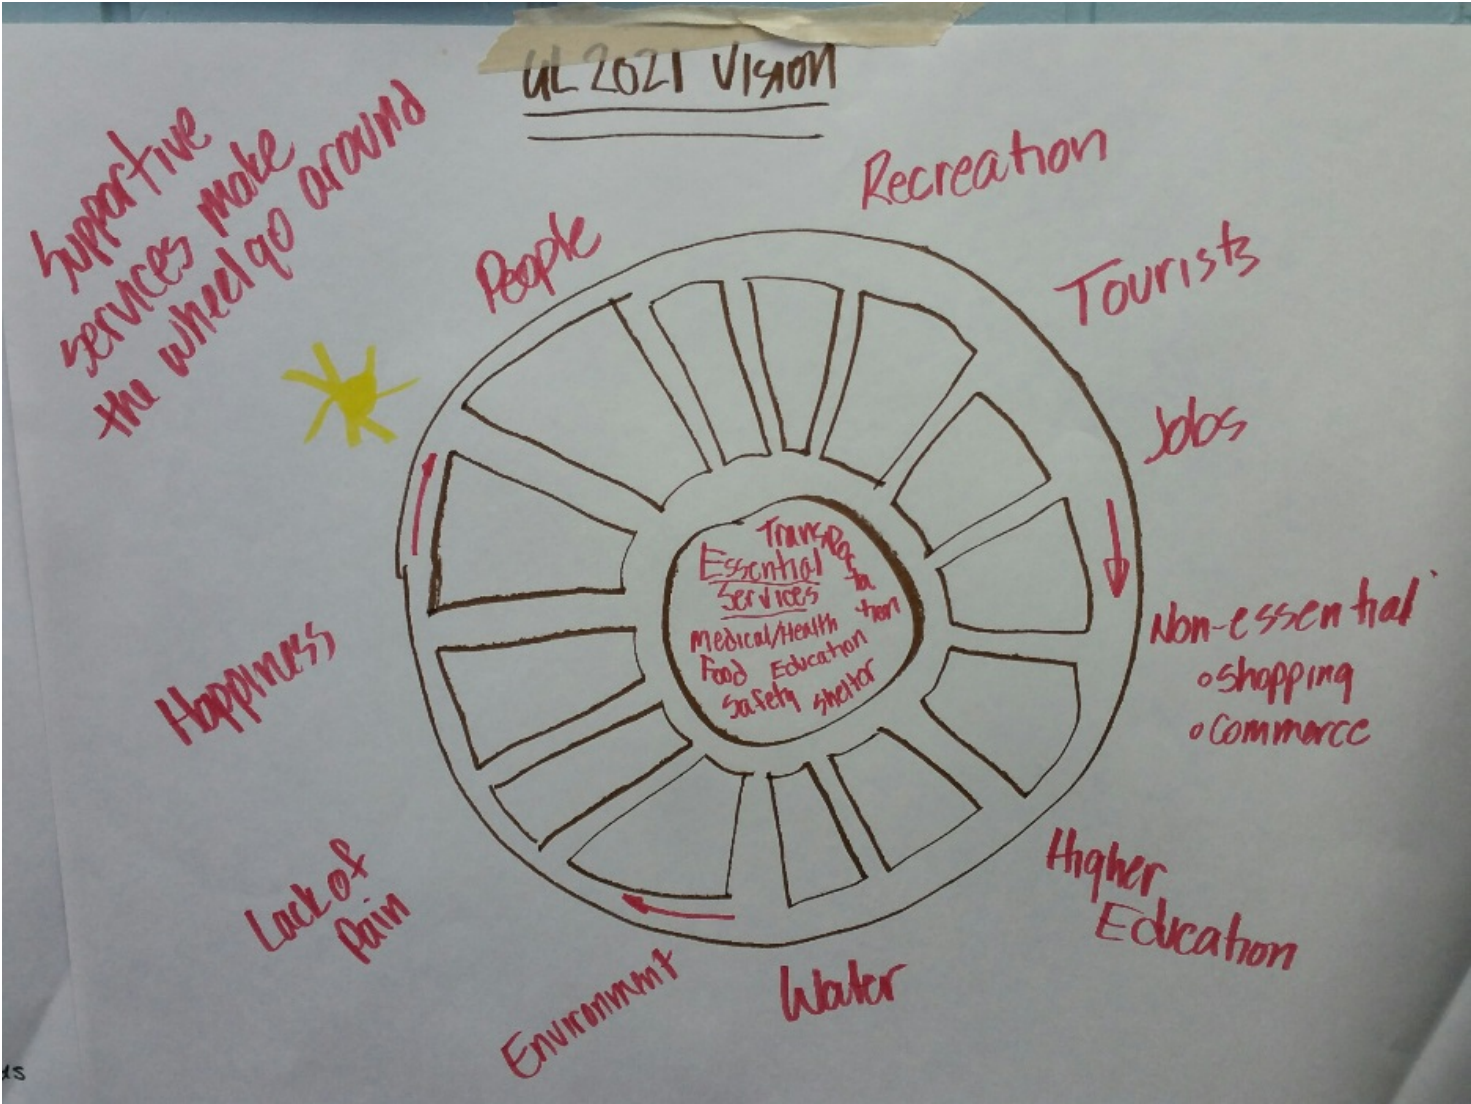 GL 2021 Vision
Supportive
services make
the wheel go around
People
Recreation
Tourists
Jobs
Non-essential
shopping
commerce
Higher
Education
Water
Environment
Lack of
Pain
Happiness
Transporta
tion
Essential
Services
Medical/Health
Food Education
Safety Shelter